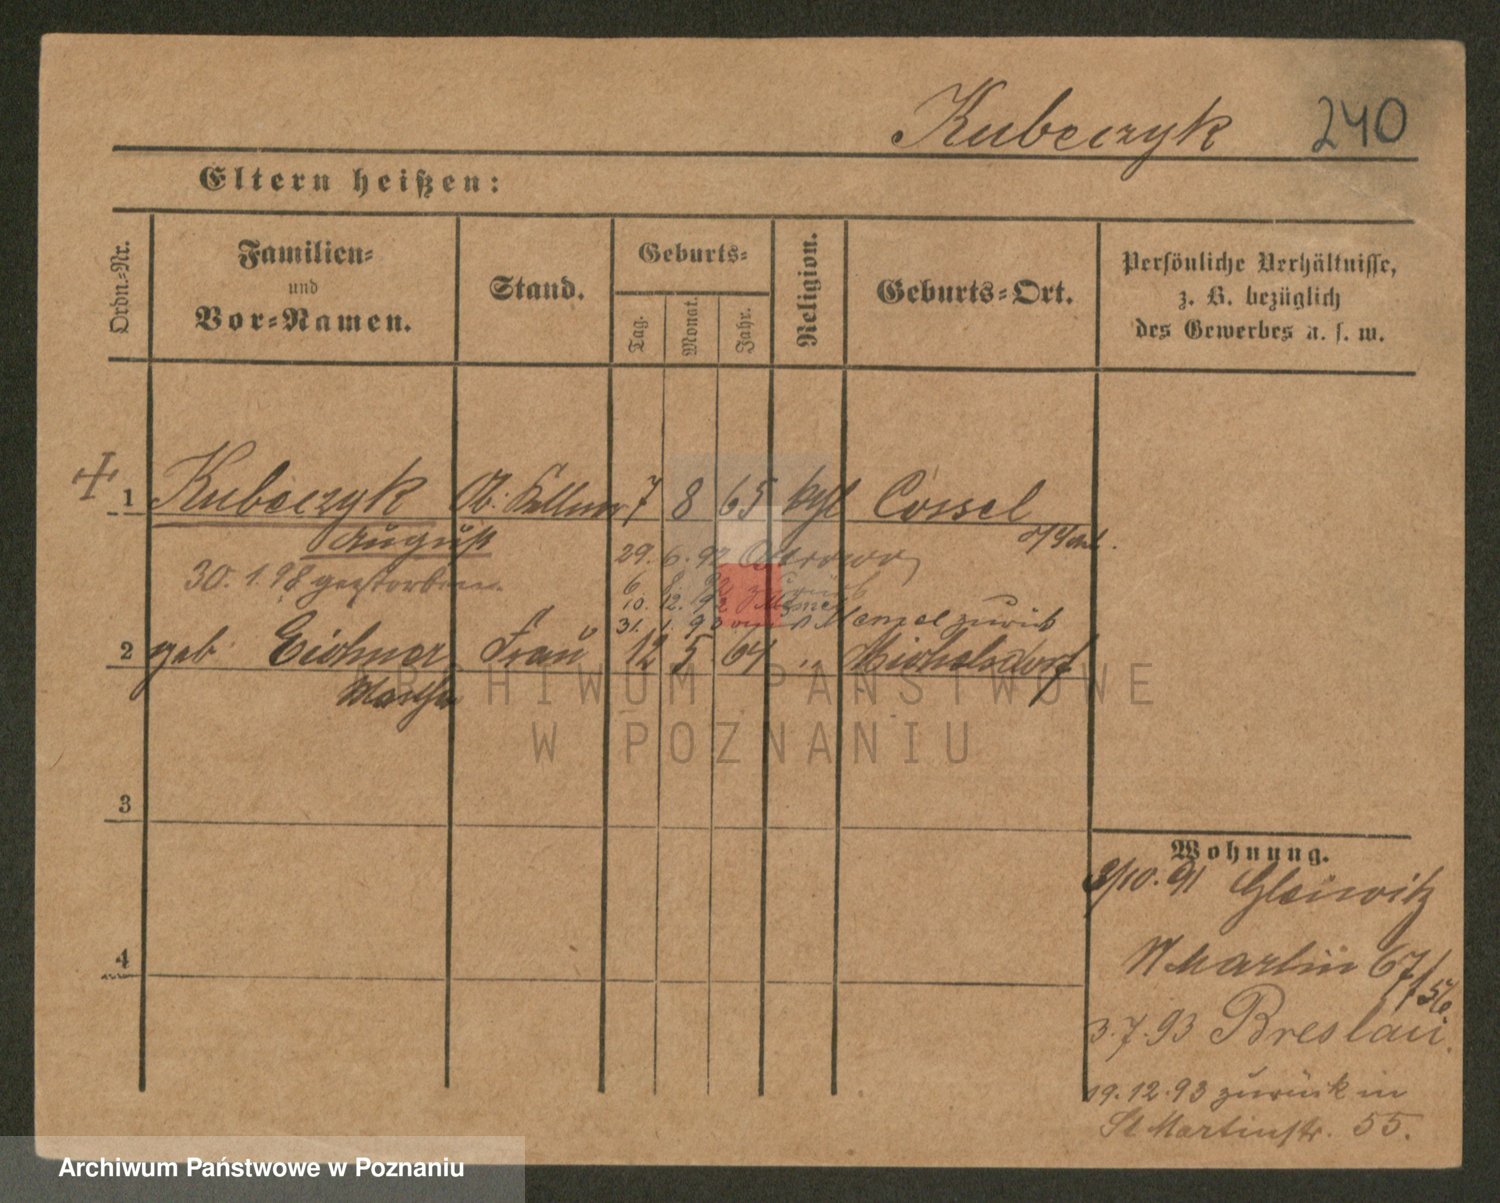 Kubeczyk 240
Eltern heißen:
Ordn.-Nr.
Familien-
und
Vor-Namen.
Stand.
Geburts-
Tag.
Monat.
Jahr.
Religion.
Geburts-Ort.
Persönliche Verhältnisse,
z. B. bezüglich
des Gewerbes u. s. w.
1 Kubeczyk Ob. Kellner 7 8 65 kgl Cossel
August
29. 6. 92 Ostrowo
30. 1. 98 gestorben.
6. 8. 92 zurück
10. 12. 92
31. 1. 93 Memel zurück
2 geb. Eichner Frau 12 5 64 " Michelsdorf
Martha
ARCHIWUM PAŃSTWOWE
W POZNANIU
3
Wohnung.
3/10. 91 Gleiwitz
4
St Martin 67/56
3.7.93 Breslau.
19.12.93 zurück in
St Martinstr. 55.
Archiwum Państwowe w Poznaniu